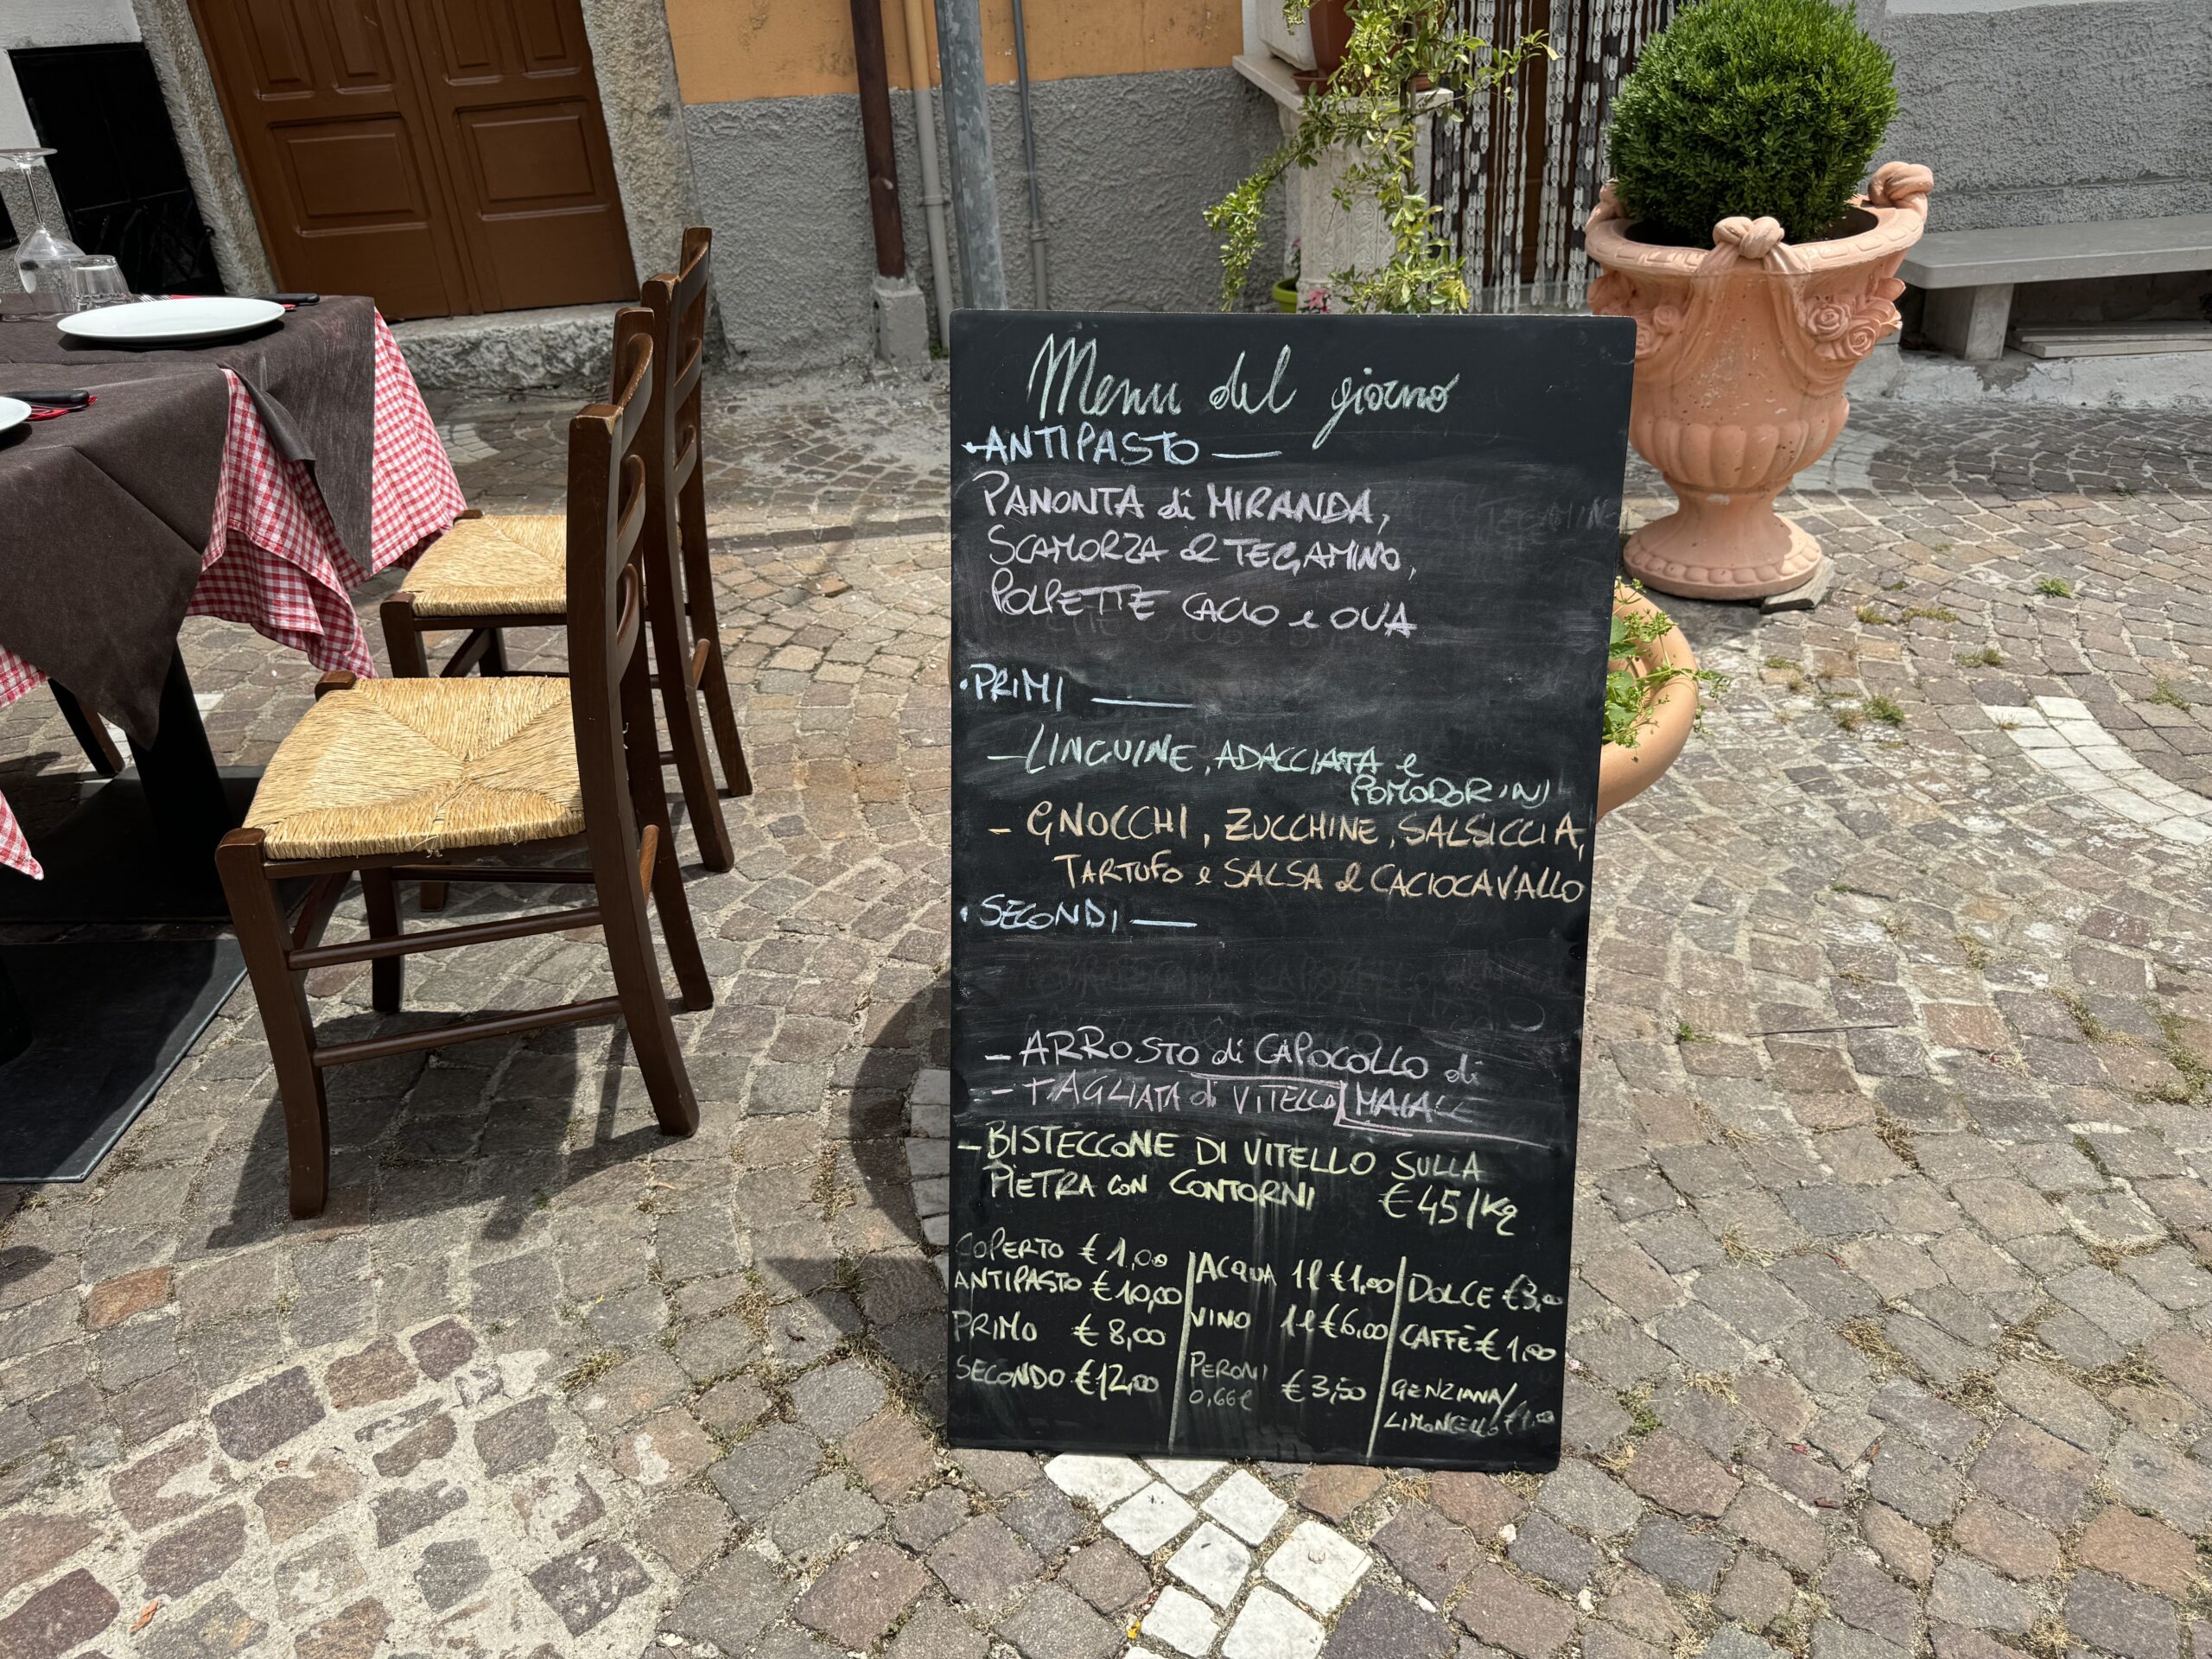 Menu del giorno
·ANTIPASTO —
PANONTA di MIRANDA,
SCAMORZA al TEGAMINO,
POLPETTE CACIO e OVA
·PRIMI —
- LINGUINE, ADACCIATA e
POMODORINI
- GNOCCHI, ZUCCHINE, SALSICCIA,
TARTUFO e SALSA al CACIOCAVALLO
·SECONDI —
- ARROSTO di CAPOCOLLO di
MAIALE
- TAGLIATA di VITELLO
- BISTECCONE DI VITELLO SULLA
PIETRA CON CONTORNI €45/Kg
COPERTO €1,00
ANTIPASTO €10,00
PRIMO €8,00
SECONDO €12,00
ACQUA 1l €1,00
VINO 1l €6,00
PERONI
0,66l €3,50
DOLCE €3,00
CAFFÈ €1,00
GENZIANA/
LIMONCELLO